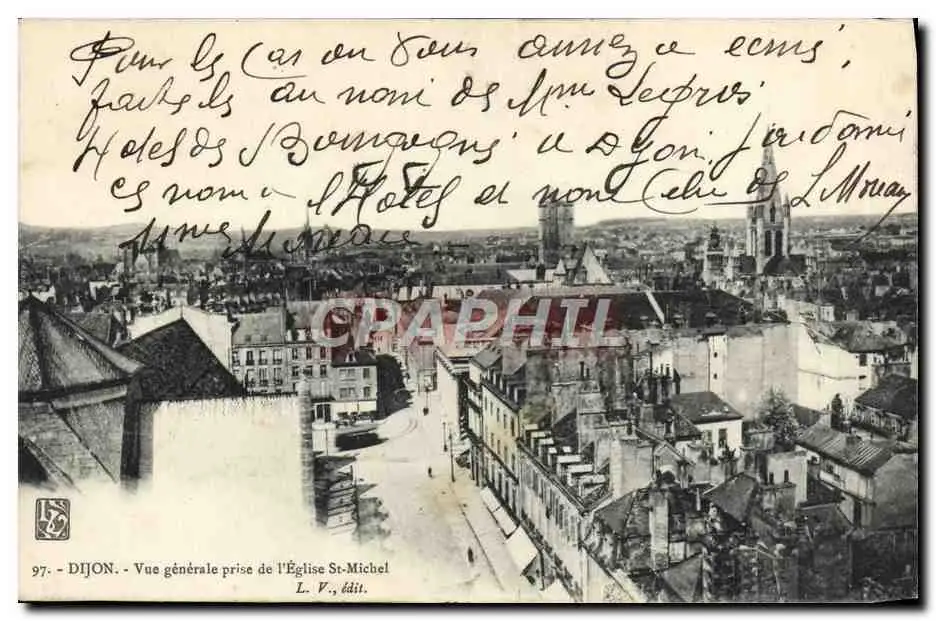 Pour les Cas ou vous aurriez a ecrire,
faites les au nom de Mme Legros
Hotel des de Bourgogne a Dijon
ces nom a l'Hotel et non Celui de
Mme Moreau
CPAPHIL
97. - DIJON. - Vue générale prise de l'Église St-Michel
L. V., édit.